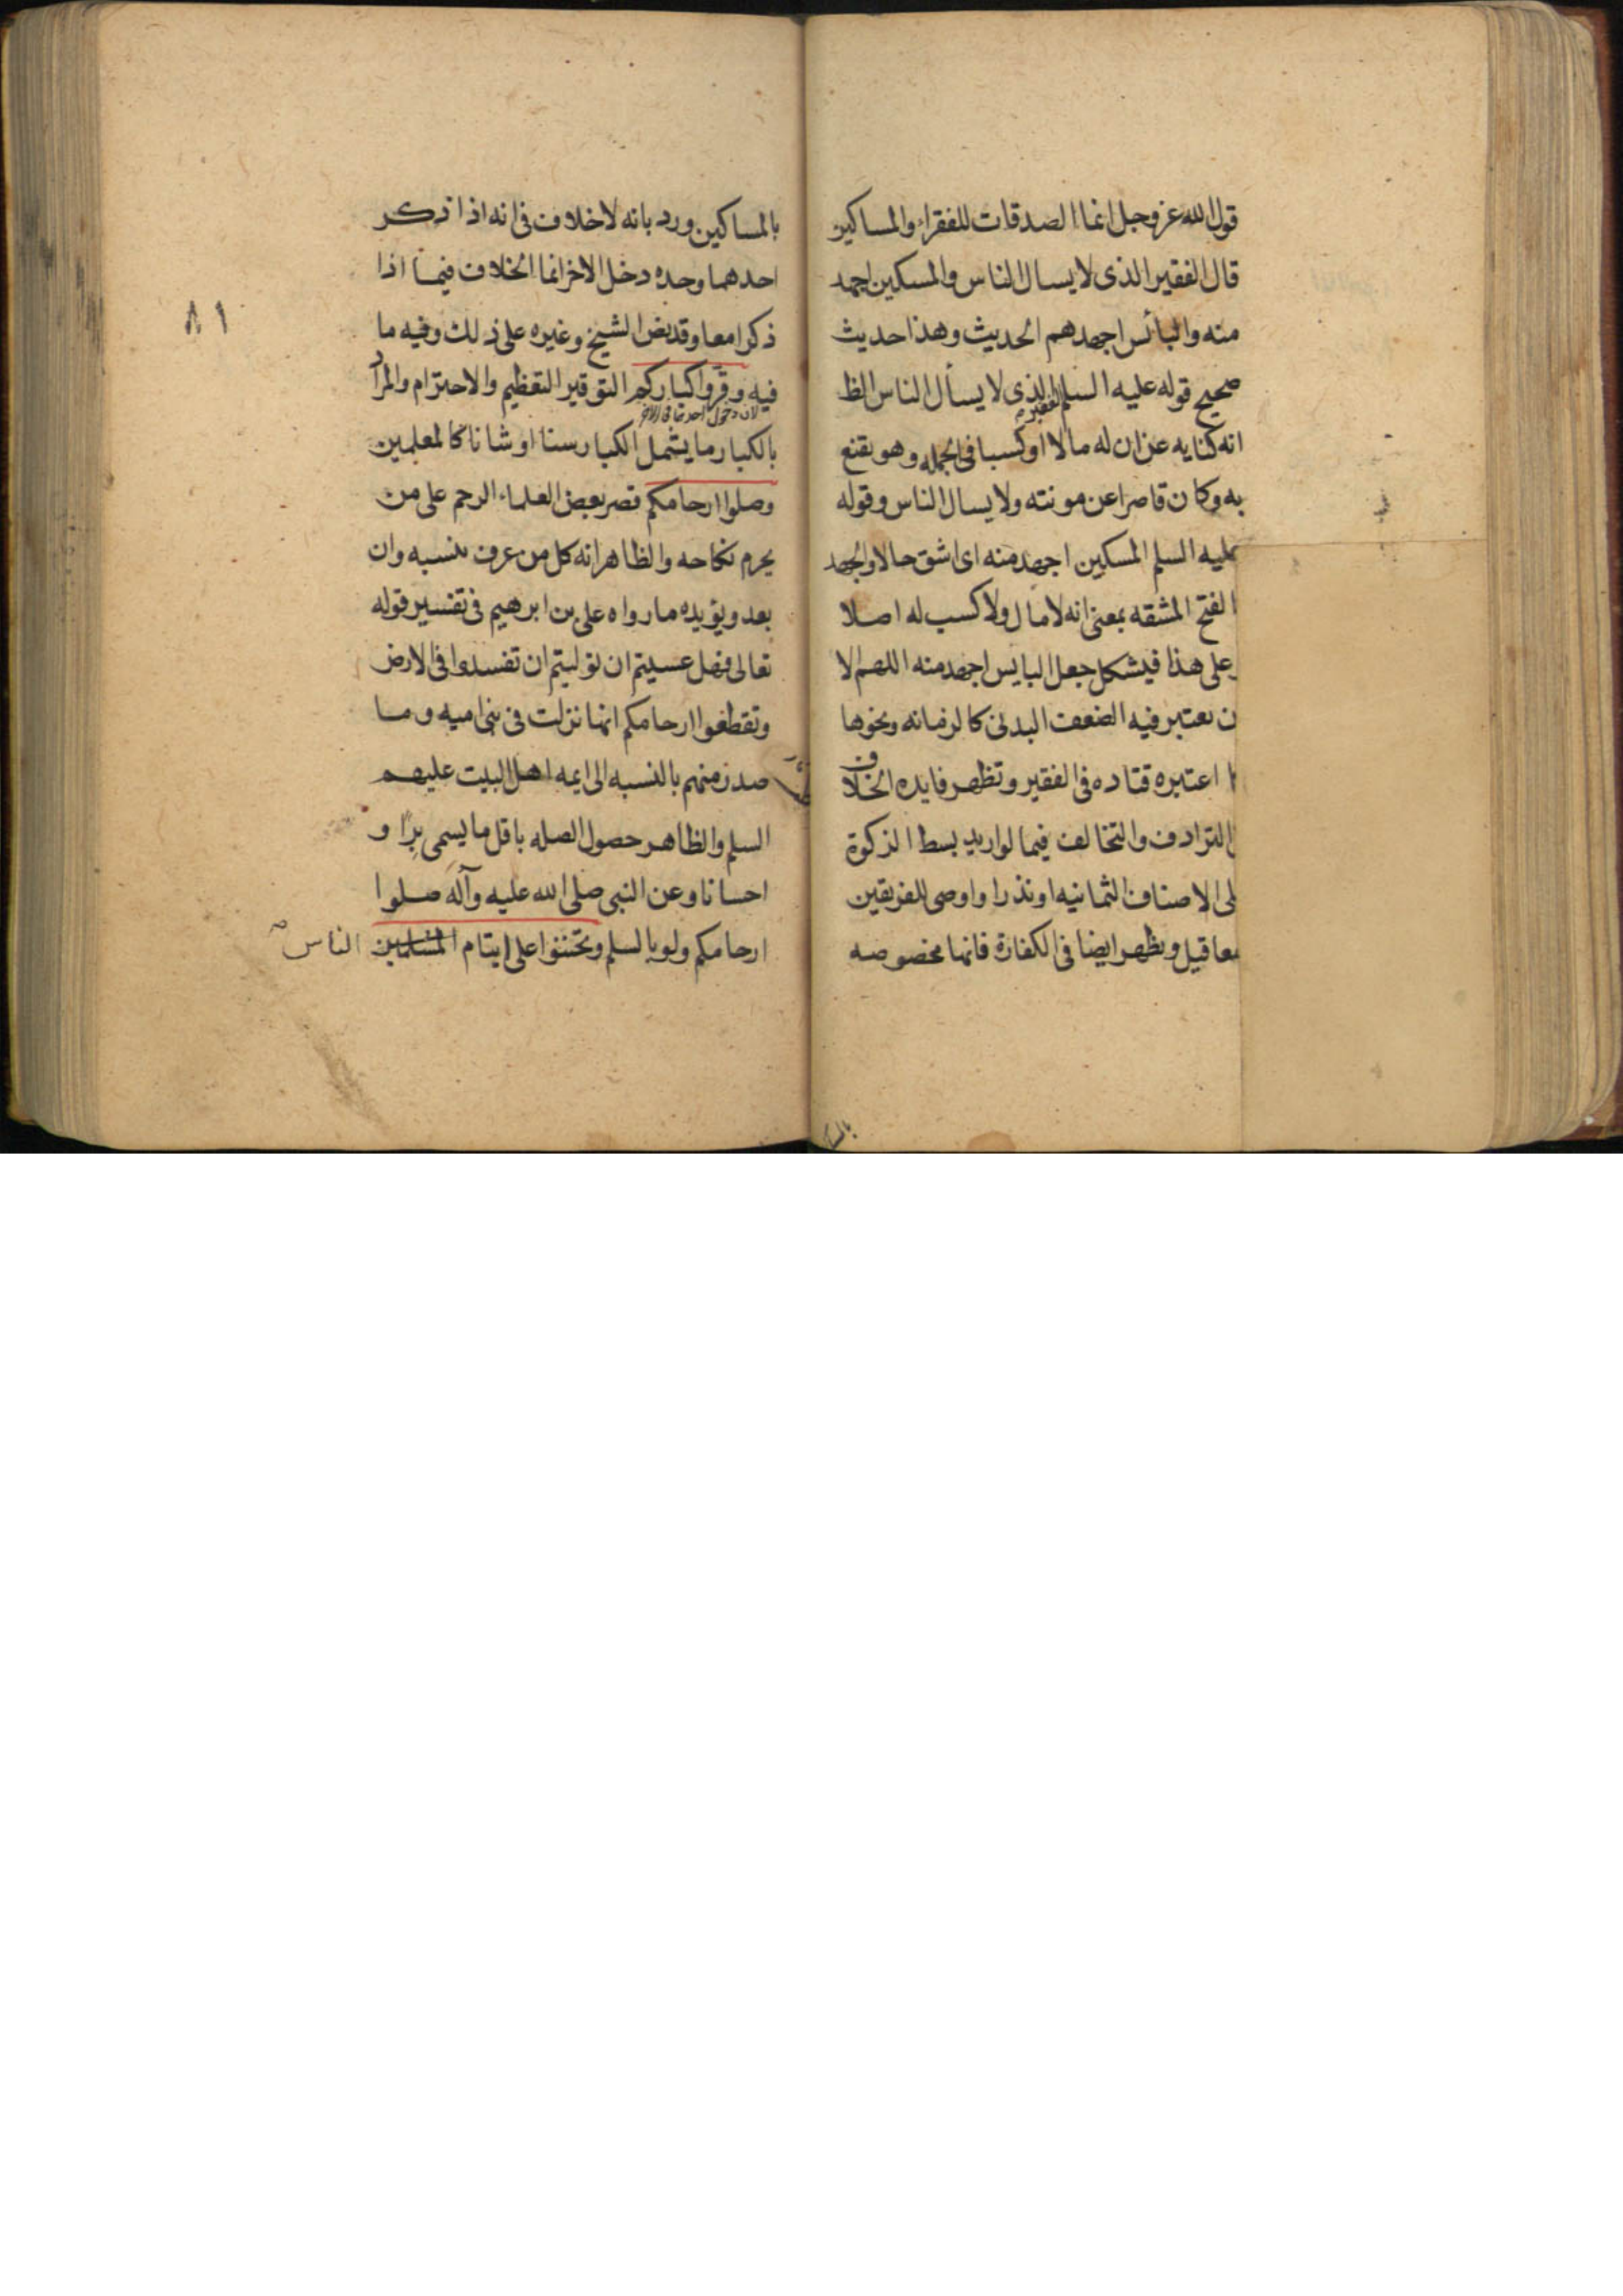 قول الله عز وجل انما الصدقات للفقراء والمساكين
قال الفقير الذى لا يسال الناس والمسكين اجهد
منه والبائس اجهدهم الحديث وهذا حديث
صحيح قوله عليه السلم الفقير الذى لا يسأل الناس الظ
انه كنايه عن ان له مالا او كسبا فى الجمله وهو يقنع
به وكان قاصرا عن مونته ولا يسال الناس وقوله
عليه السلم المسكين اجهد منه اى اشق حالا والجهد
الفتح المشقه بمعنى انه لا مال ولا كسب له اصلا
وعلى هذا فيشكل جعل البايس اجهد منه اللهم الا
ن يعتبر فيه الضعف البدنى كالزمانه ونحوها
ا اعتبره قتاده فى الفقير وتظهر فايده الخلاف
التراد ف والتخالف فيما لو اريد بسط الزكوة
لى الاصناف الثمانيه او نذر او اوصى للفريقين
معا قيل ويظهر ايضا فى الكفارة فانها مخصوصه
٨١
بالمساكين ورد بانه لا خلاف فى انه اذا ذكر
احدهما وحده دخل الاخر انما الخلاف فيما اذا
ذكرا معا وقد نص الشيخ وغيره على ذلك وفيه ما
فيه وقروا كباركم التوقير التعظيم والاحترام والمراد
لان دخول احدهما فى الاخر
بالكبار ما يشمل الكبار سنا او شانا كالمعلمين
وصلوا ارحامكم قصر بعض العلماء الرحم على من
يحرم نكاحه والظاهر انه كل من عرف بنسبه وان
بعد ويؤيده ما رواه على بن ابرهيم فى تفسير قوله
تعالى فهل عسيتم ان توليتم ان تفسدوا فى الارض
وتقطعوا ارحامكم انها نزلت فى بنى اميه وما
صدر منهم بالنسبه الى ايمه اهل البيت عليهم
السلم والظاهر حصول الصله باقل ما يسمى برا و
احسانا وعن النبى صلى الله عليه وآله صلوا
ارحامكم ولو بالسلم وتحننوا على ايتام المسلمين الناس